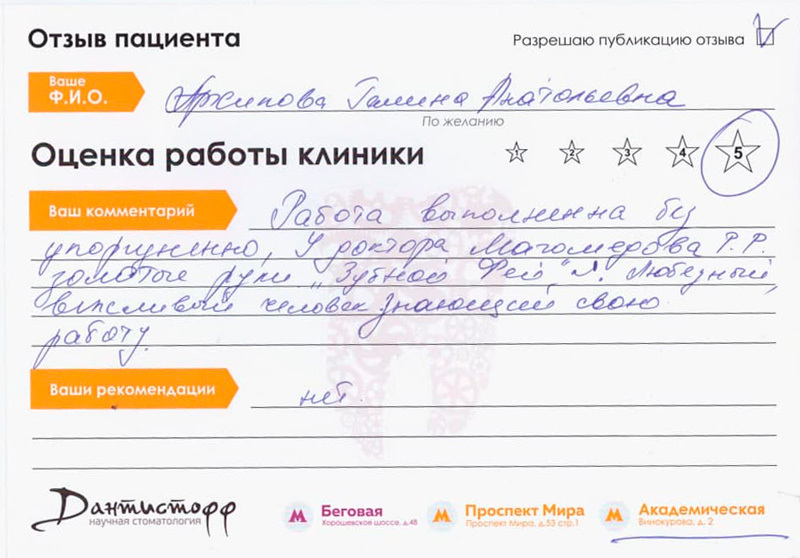 Отзыв пациента
Разрешаю публикацию отзыва
Ваше
Ф.И.О.
Архипова Галина Анатольевна
По желанию
Оценка работы клиники
1 2 3 4 5
Ваш комментарий
Работа выполненна без
упоршуненно, У доктора Магомедова Р. Р.
золотые руки „Зубной Фей"!. Любезный,
вежливый человек знающий свою
работу.
Ваши рекомендации
нет.
Дантистофф
научная стоматология
М Беговая
Хорошевское шоссе, д.48
М Проспект Мира
Проспект Мира, д.53 стр.1
М Академическая
Винокурова, д. 2